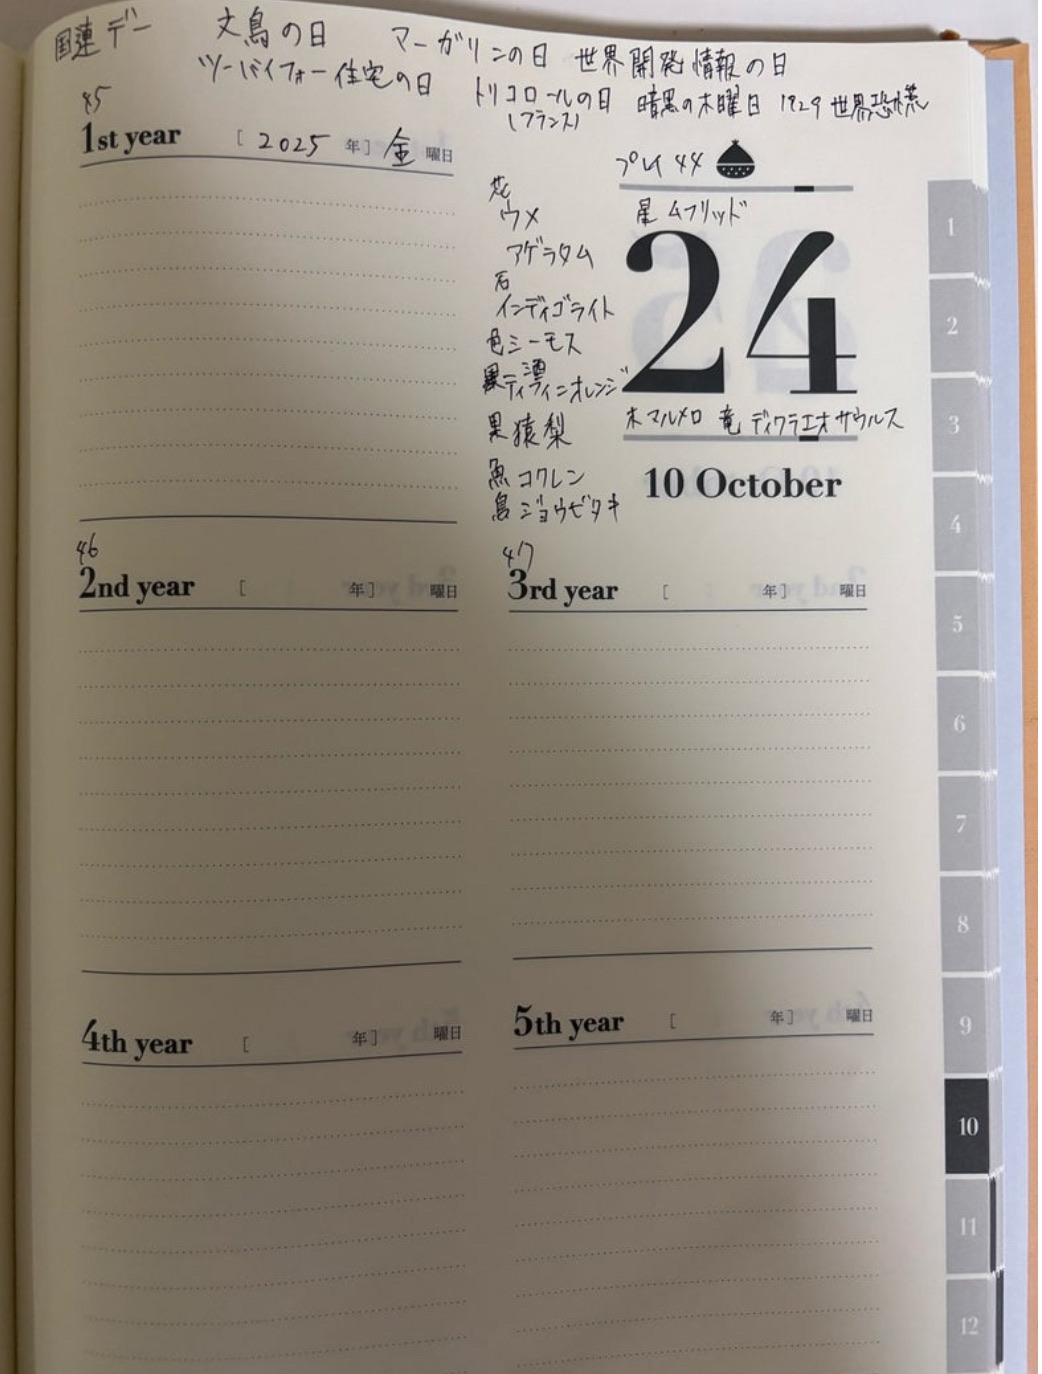 国連デー 文鳥の日 マーガリンの日 世界開発情報の日
ツーバイフォー住宅の日 トリコロールの日 暗黒の木曜日 1929 世界恐慌
(フランス)
45
1st year [ 2025 年] 金 曜日
プレイ 44
花
ウメ
星 ムフリッド
アゲラタム
石
インディゴライト
色 シーモス
酒
ティフィニオレンジ
果 猿梨
魚 コクレン
鳥 ジョウビタキ
24
木 マルメロ 竜 ディクラエオサウルス
10 October
46
2nd year [ 年] 曜日
47
3rd year [ 年] 曜日
4th year [ 年] 曜日
5th year [ 年] 曜日
1
2
3
4
5
6
7
8
9
10
11
12